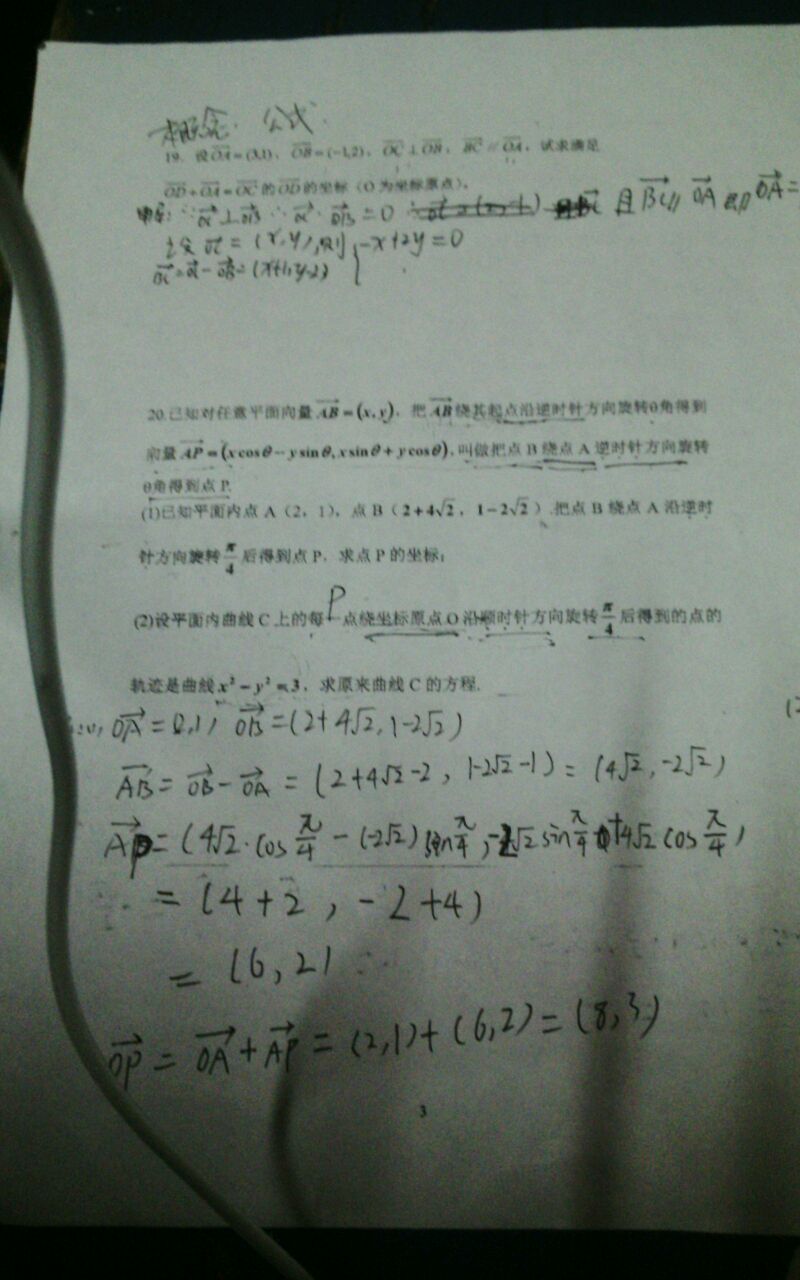 概念. 公式
19. 设OA=(3,1), OB=(-1,2), OC⊥OB, BC // OA, 试求满足
OD+OA=OC 的OD的坐标(O为坐标原点).
∵ OC⊥OB ∴ OC·OB=0 且BC// OA OA=
设 OC=(x,y) -x+2y=0
-OB=(x+1,y-2)
20.已知对任意平面向量AB=(x,y), 把AB绕其起点沿逆时针方向旋转θ角得到
向量AP=(xcosθ-ysinθ,xsinθ+ycosθ),叫做把点B绕点A逆时针方向旋转
θ角得到点P.
(1)已知平面内点A(2, 1), 点B(2+4√2, 1-2√2).把点B绕点A沿逆时
针方向旋转π/4后得到点P, 求点P的坐标;
P
(2)设平面内曲线C上的每一点绕坐标原点O沿顺时针方向旋转π/4后得到的点的
轨迹是曲线x²-y²=3, 求原来曲线C的方程.
OA=(2,1) OB=(2+4√2,1-2√2)
AB=OB-OA=(2+4√2-2, 1-2√2-1)=(4√2,-2√2)
AP=(4√2·cos π/4-(-2√2)sin π/4,-2√2 sin π/4+4√2 cos π/4)
=(4+2, -2+4)
=(6,2)
OP=OA+AP=(2,1)+(6,2)=(8,3)
3